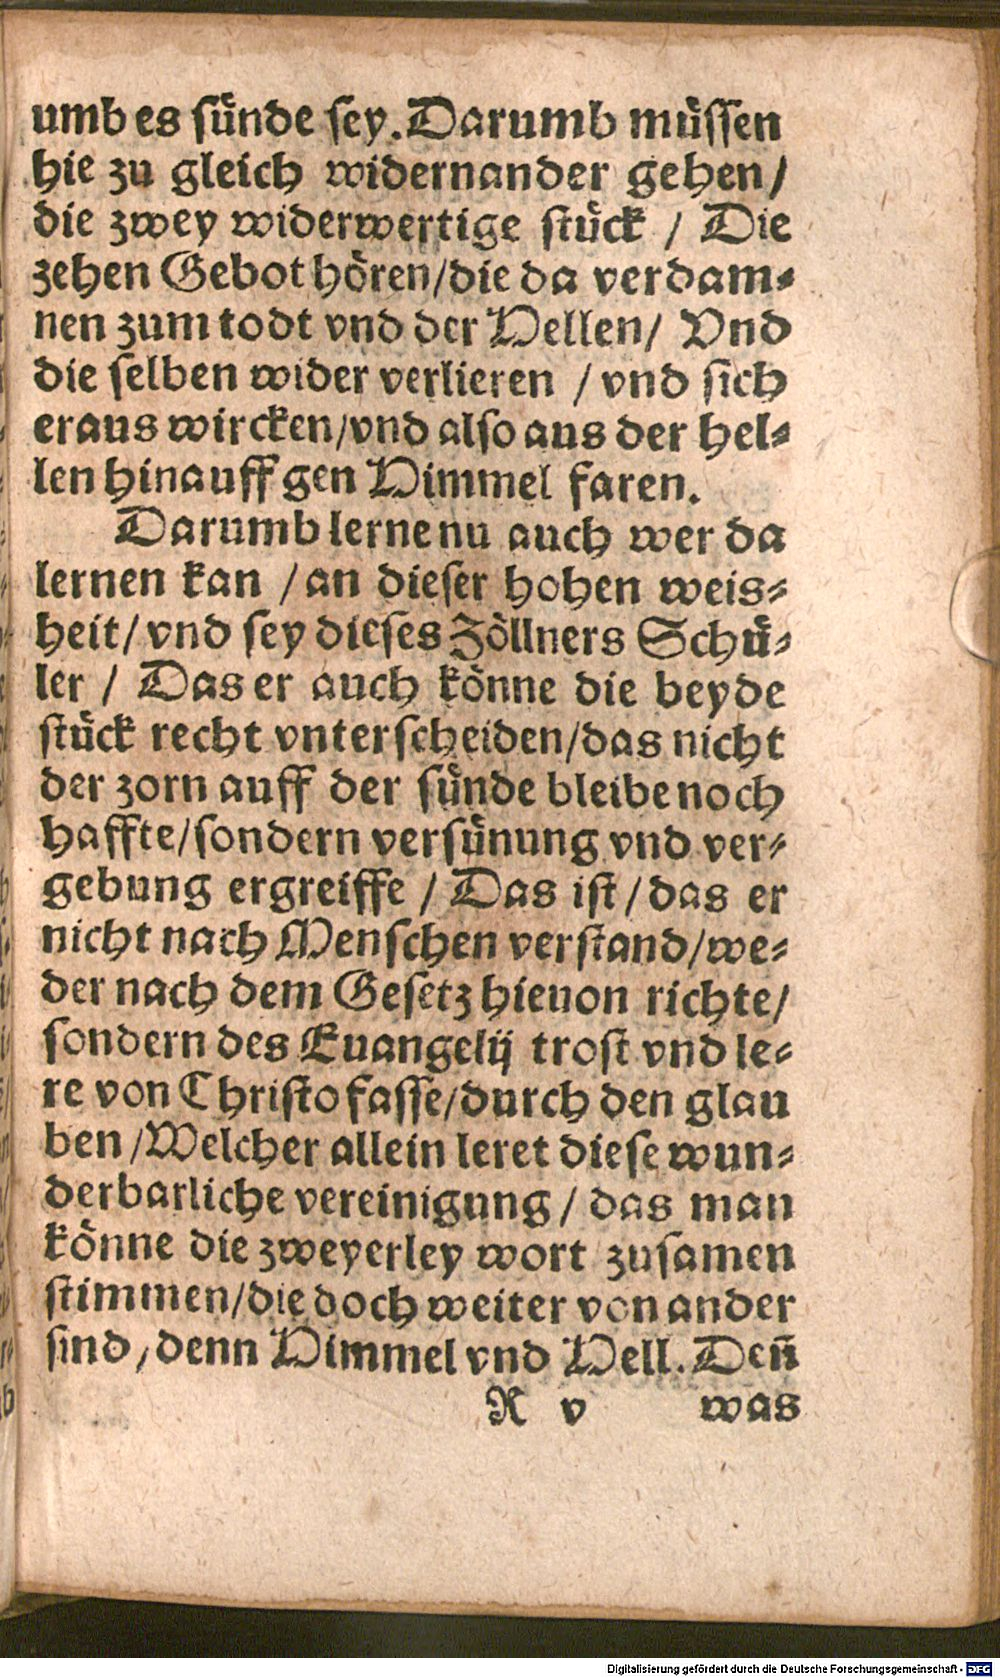 umb es sünde sey. Darumb müssen
hie zu gleich widernander gehen/
die zwey widerwertige stück / Die
zehen Gebot hören/die da verdam⸗
nen zum todt vnd der Hellen/ Vnd
die selben wider verlieren / vnd sich
eraus wircken/vnd also aus der hel⸗
len hinauff gen Himmel faren.
Darumb lerne nu auch wer da
lernen kan / an dieser hohen weis⸗
heit/ vnd sey dieses Zöllners Schü⸗
ler / Das er auch könne die beyde
stück recht vnterscheiden/das nicht
der zorn auff der sünde bleibe noch
haffte/sondern versünung vnd ver⸗
gebung ergreiffe / Das ist / das er
nicht nach Menschen verstand/we⸗
der nach dem Gesetz hieuon richte/
sondern des Euangelij trost vnd le⸗
re von Christo fasse/durch den glau
ben /Welcher allein leret diese wun⸗
derbarliche vereinigung / das man
könne die zweyerley wort zusamen
stimmen/die doch weiter von ander
sind/denn Himmel vnd Hell. Deñ
R v was
Digitalisierung gefördert durch die Deutsche Forschungsgemeinschaft - DFG